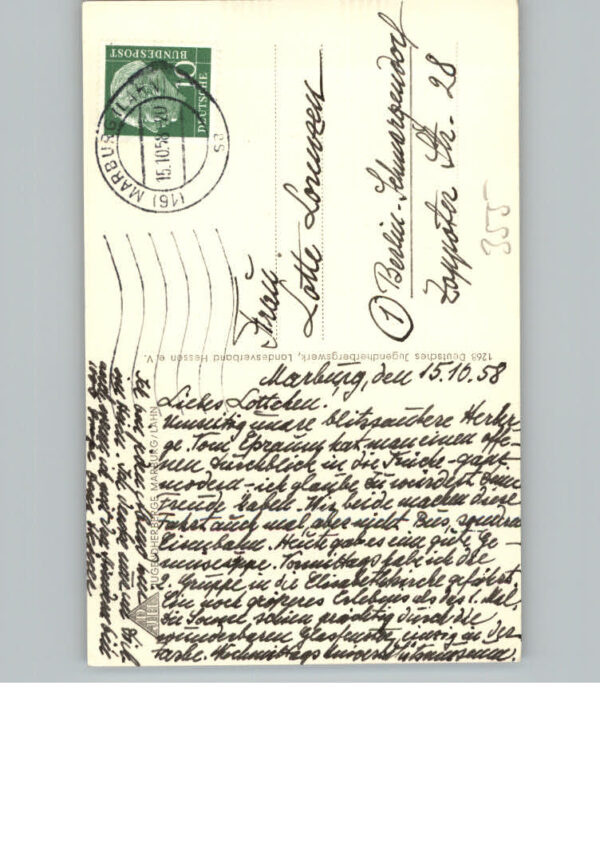 DEUTSCHE
BUNDESPOST
10
(16) MARBURG (LAHN)
15.10.58
Frau
Lotte Lorenzen
① Berlin-Schmargendorf
Zoppoter Str. 28
355
1268 Deutsches Jugendherbergswerk, Landesverband Hessen e.V.
JUGENDHERBERGE MARBURG/LAHN
Marburg, den 15.10.58
Liebes Lottchen.
Umseitig unsere blitzsaubere Herber-
ge. Vom Eßraum hat man einen offe-
nen Durchblick in die Küche - ganz
modern - ich glaube Du würdest Deine
Freude haben. Wir beide machen diese
Fahrt auch mal, aber nicht Bus, sondern
Eisenbahn. Heute gab es eine gute Ge-
müsesuppe. Vormittags hab ich die
2. Gruppe in die Elisabethkirche geführt.
Ein noch größeres Erlebnis als das 1. Mal.
Die Sonne schien prächtig durch die
wunderbaren Glasfenster, einzig in der
Farbe. Nachmittags Universitätsmuseum.